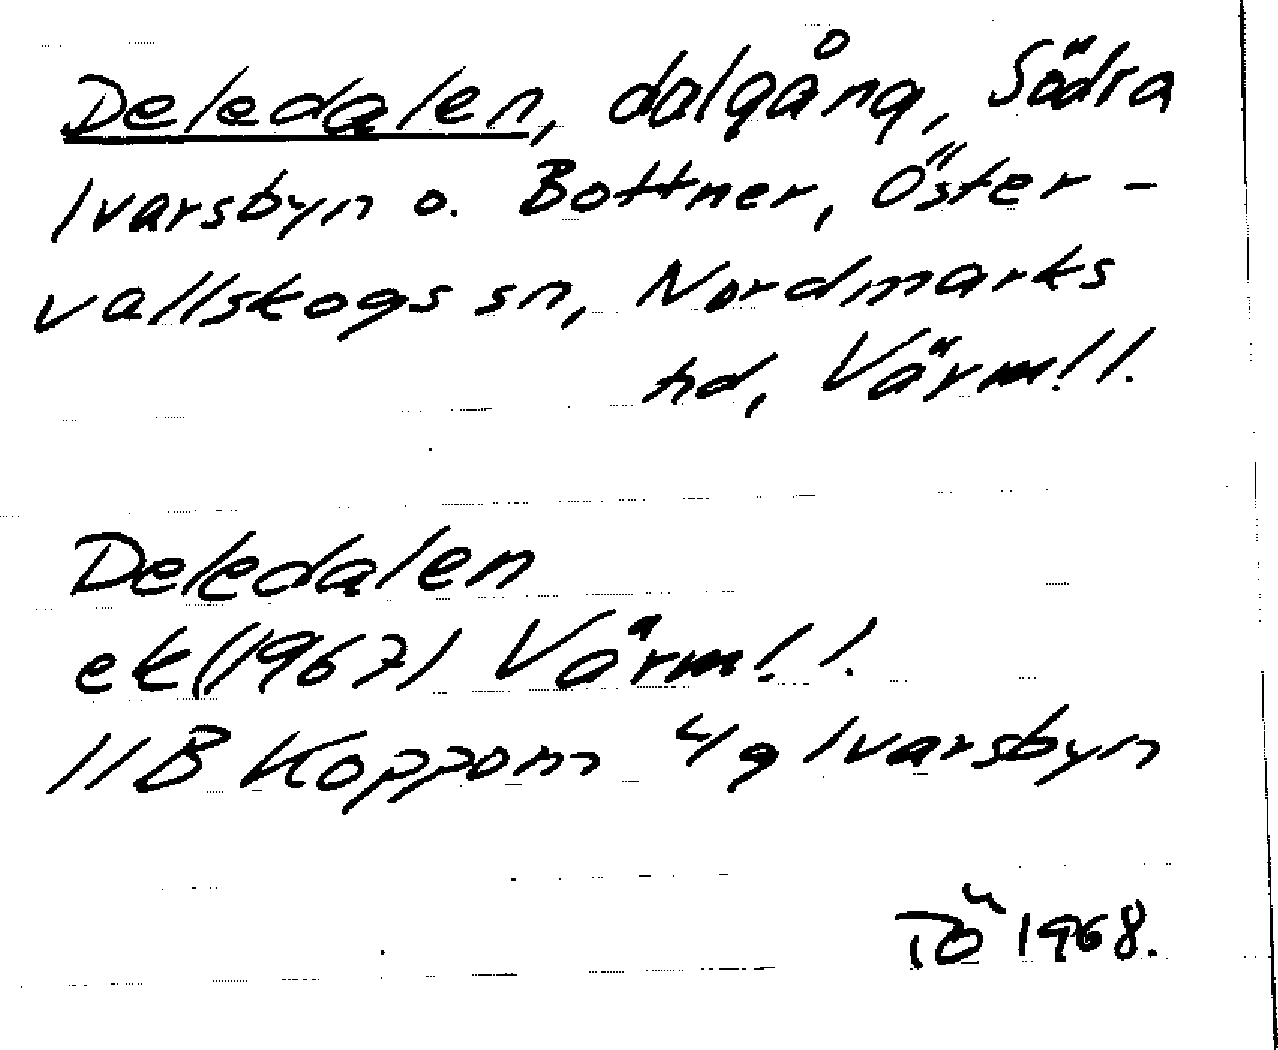 Deledalen, dalgång, Södra
Ivarsbyn o. Bottner, Öster-
vallskogs sn, Nordmarks
hd, Värml.
Deledalen
ek (1967) Värml.
11B Koppom 4g Ivarsbyn
TÖ 1968.